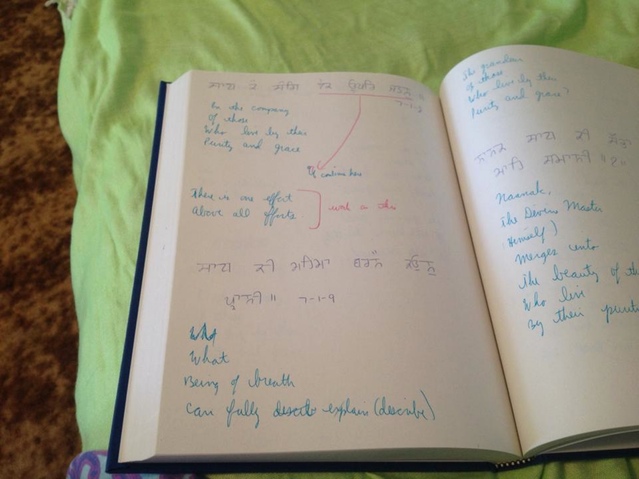 ਸਾਧ ਕੈ ਸੰਗਿ
7-1-2
In the company
of those
Who live by their
Purity and grace
continue here
There is one effort
Above all efforts.
ਸਾਧ ਕੀ ਮਹਿਮਾ ਬਰਨੈ ਕਉਨੁ
ਪ੍ਰਾਨੀ ॥ 7-1-9
Who
What
Being of breath
can fully explain (describe)
The grandeur
of those
Who live by their
Purity and grace?
ਨਾਨਕ ਸਾਧ ਕੀ
ਮਾਹਿ ਸਮਾਨੀ ॥੧॥
Naanak,
The Divine Master
Himself)
Merges into
The beauty of
Who live
By their